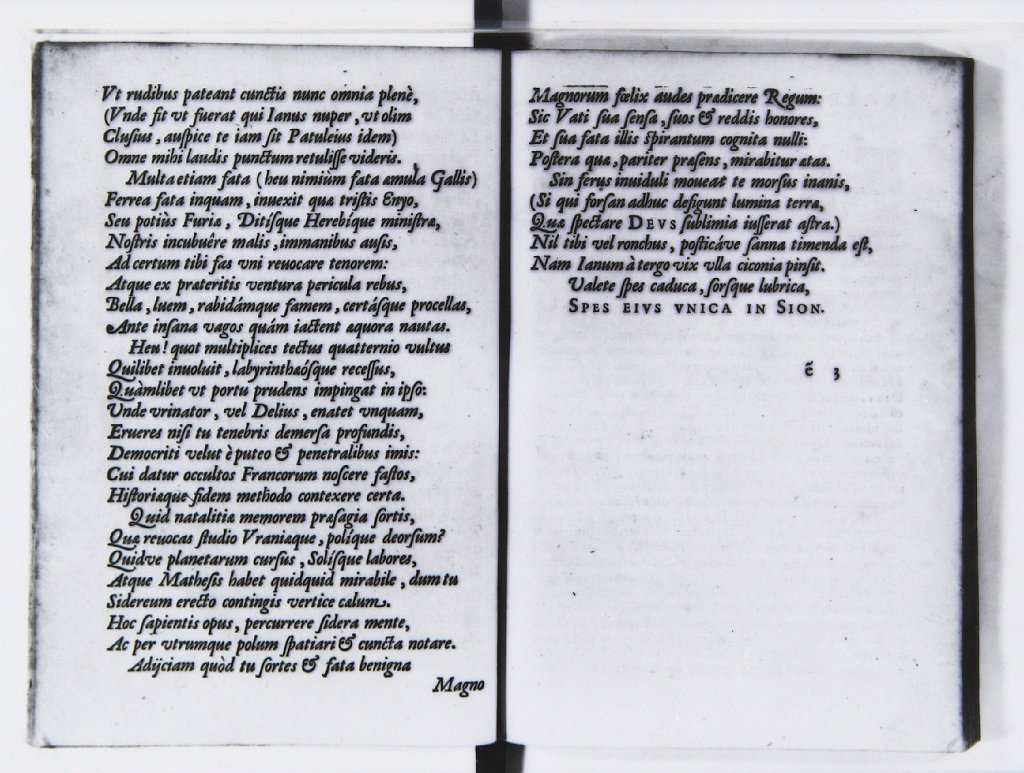 Vt rudibus pateant cunctis nunc omnia plenè,
(Vnde fit vt fuerat qui Ianus nuper, vt olim
Clusius, auspice te iam sit Patuleius idem)
Omne mihi laudis punctum retulisse videris.
Multa etiam fata (heu nimiùm fata æmula Gallis)
Ferrea fata inquam, inuexit quæ tristis Enyo,
Seu potiùs Furia, Ditísque Herebíque ministra,
Nostris incubuêre malis, immanibus ausis,
Ad certum tibi fas vni reuocare tenorem:
Atque ex præteritis ventura pericula rebus,
Bella, luem, rabidámque famem, certásque procellas,
Ante insana vagos quám iactent æquora nautas.
Heu! quot multiplices tectus quatternio vultus
Quilibet inuoluit, labyrinthæósque recessus,
Quàmlibet vt portu prudens impingat in ipso:
Unde vrinator, vel Delius, enatet vnquam,
Erueres nisi tu tenebris demersa profundis,
Democriti velut è puteo & penetralibus imis:
Cui datur occultos Francorum noscere fastos,
Historiæque fidem methodo contexere certa.
Quid natalitiæ memorem præsagia sortis,
Quæ reuocas studio Vraniæque, políque deorsum?
Quidve planetarum cursus, Solísque labores,
Atque Mathesis habet quidquid mirabile, dum tu
Sidereum erecto contingis vertice cælum.
Hoc sapientis opus, percurrere sidera mente,
Ac per vtrumque polum spatiari & cuncta notare.
Adijciam quòd tu sortes & fata benigna
Magno
Magnorum fœlix audes prædicere Regum:
Sic Vati sua sensa, suos & reddis honores,
Et sua fata illis spirantum cognita nulli:
Postera qua, pariter præsens, mirabitur ætas.
Sin ferus inuiduli moueat te morsus inanis,
(Si qui forsan adhuc defigunt lumina terra,
Quæ spectare DEVS sublimia iusserat astra.)
Nil tibi vel ronchus, posticáve sanna timenda est,
Nam Ianum à tergo vix vlla ciconia pinsit.
Valete spes caduca, sorsque lubrica,
SPES EIVS VNICA IN SION.
ẽ 3